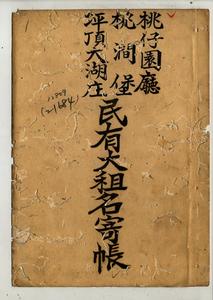 桃仔園廳
桃澗堡
坪頂大湖庄
民有大租名寄帳